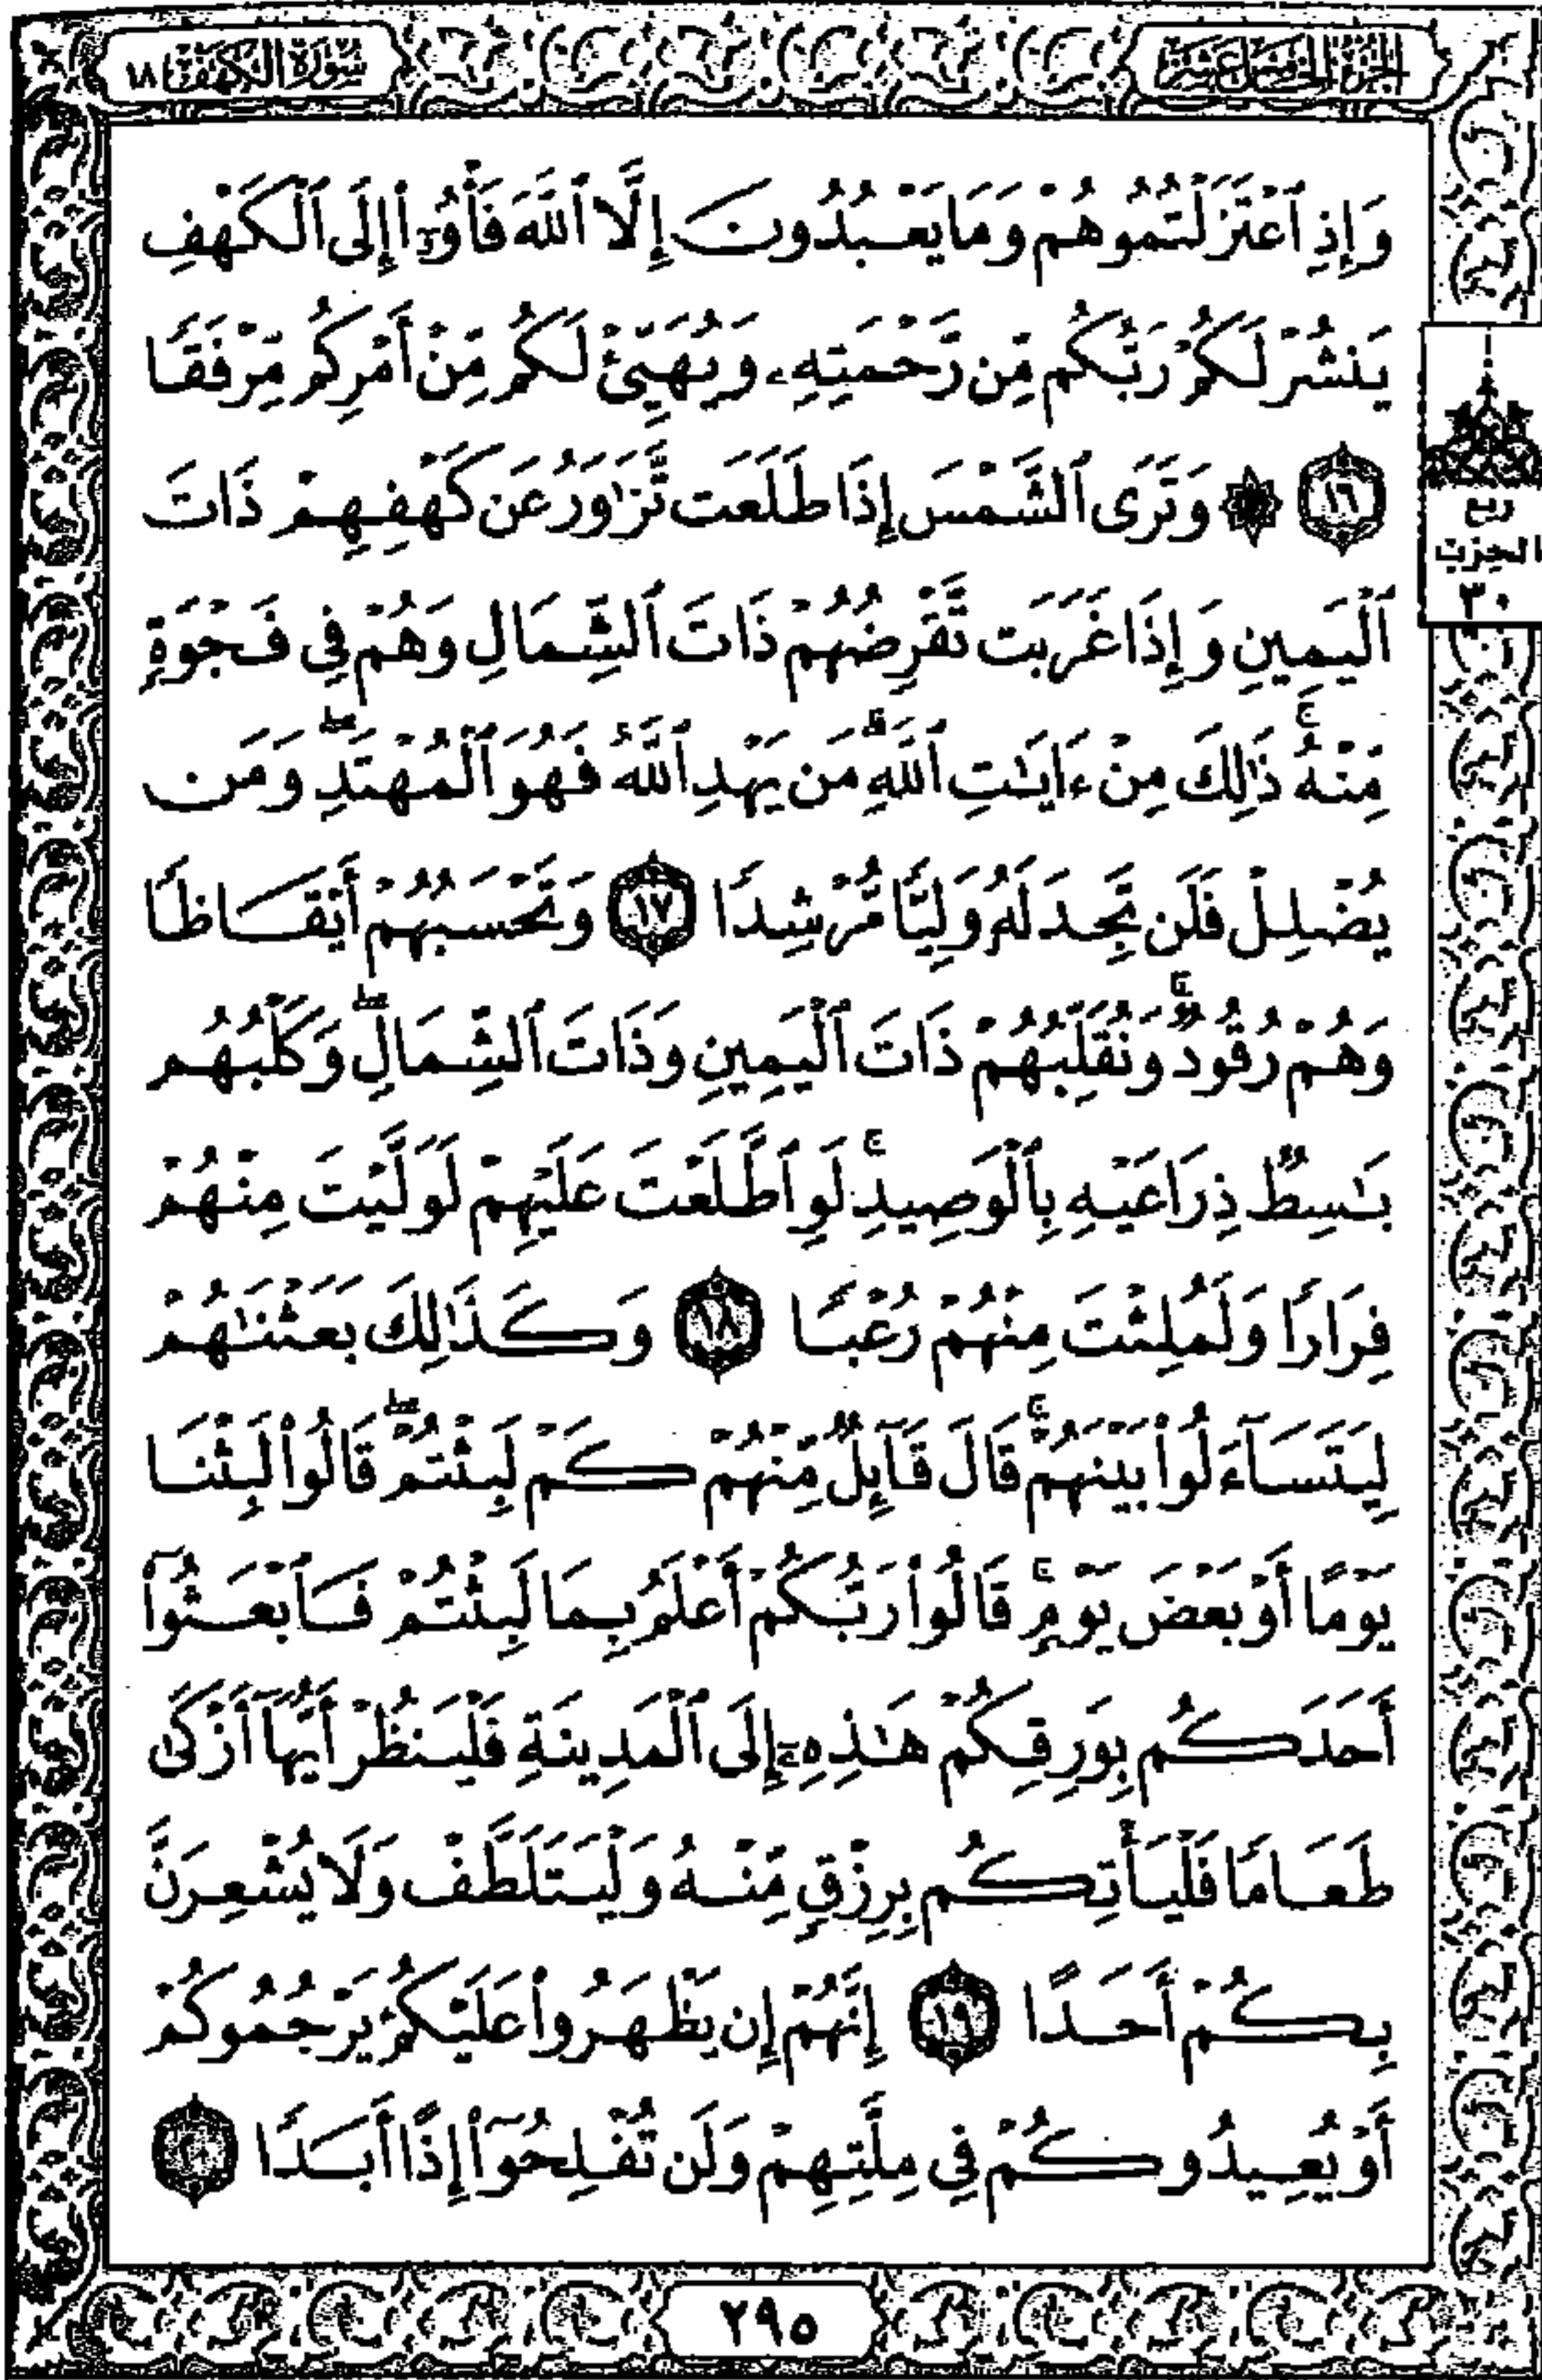 الجزء الخامس عشر
سورة الكهف ١٨
وَإِذِ ٱعْتَزَلْتُمُوهُمْ وَمَا يَعْبُدُونَ إِلَّا ٱللَّهَ فَأْوُۥٓا۟ إِلَى ٱلْكَهْفِ
يَنشُرْ لَكُمْ رَبُّكُم مِّن رَّحْمَتِهِۦ وَيُهَيِّئْ لَكُم مِّنْ أَمْرِكُم مِّرْفَقًا
١٦ ۞ وَتَرَى ٱلشَّمْسَ إِذَا طَلَعَت تَّزَٰوَرُ عَن كَهْفِهِمْ ذَاتَ
ٱلْيَمِينِ وَإِذَا غَرَبَت تَّقْرِضُهُمْ ذَاتَ ٱلشِّمَالِ وَهُمْ فِى فَجْوَةٍ
مِّنْهُ ۚ ذَٰلِكَ مِنْ ءَايَٰتِ ٱللَّهِ ۗ مَن يَهْدِ ٱللَّهُ فَهُوَ ٱلْمُهْتَدِ ۖ وَمَن
يُضْلِلْ فَلَن تَجِدَ لَهُۥ وَلِيًّا مُّرْشِدًا ١٧ وَتَحْسَبُهُمْ أَيْقَاظًا
وَهُمْ رُقُودٌ ۚ وَنُقَلِّبُهُمْ ذَاتَ ٱلْيَمِينِ وَذَاتَ ٱلشِّمَالِ ۖ وَكَلْبُهُم
بَٰسِطٌ ذِرَاعَيْهِ بِٱلْوَصِيدِ ۚ لَوِ ٱطَّلَعْتَ عَلَيْهِمْ لَوَلَّيْتَ مِنْهُمْ
فِرَارًا وَلَمُلِئْتَ مِنْهُمْ رُعْبًا ١٨ وَكَذَٰلِكَ بَعَثْنَٰهُمْ
لِيَتَسَآءَلُوا۟ بَيْنَهُمْ ۚ قَالَ قَآئِلٌ مِّنْهُمْ كَمْ لَبِثْتُمْ ۖ قَالُوا۟ لَبِثْنَا
يَوْمًا أَوْ بَعْضَ يَوْمٍ ۚ قَالُوا۟ رَبُّكُمْ أَعْلَمُ بِمَا لَبِثْتُمْ فَٱبْعَثُوٓا۟
أَحَدَكُم بِوَرِقِكُمْ هَٰذِهِۦٓ إِلَى ٱلْمَدِينَةِ فَلْيَنظُرْ أَيُّهَآ أَزْكَىٰ
طَعَامًا فَلْيَأْتِكُم بِرِزْقٍ مِّنْهُ وَلْيَتَلَطَّفْ وَلَا يُشْعِرَنَّ
بِكُمْ أَحَدًا ١٩ إِنَّهُمْ إِن يَظْهَرُوا۟ عَلَيْكُمْ يَرْجُمُوكُمْ
أَوْ يُعِيدُوكُمْ فِى مِلَّتِهِمْ وَلَن تُفْلِحُوٓا۟ إِذًا أَبَدًا ٢٠
ربع
الحزب
٣٠
٢٩٥